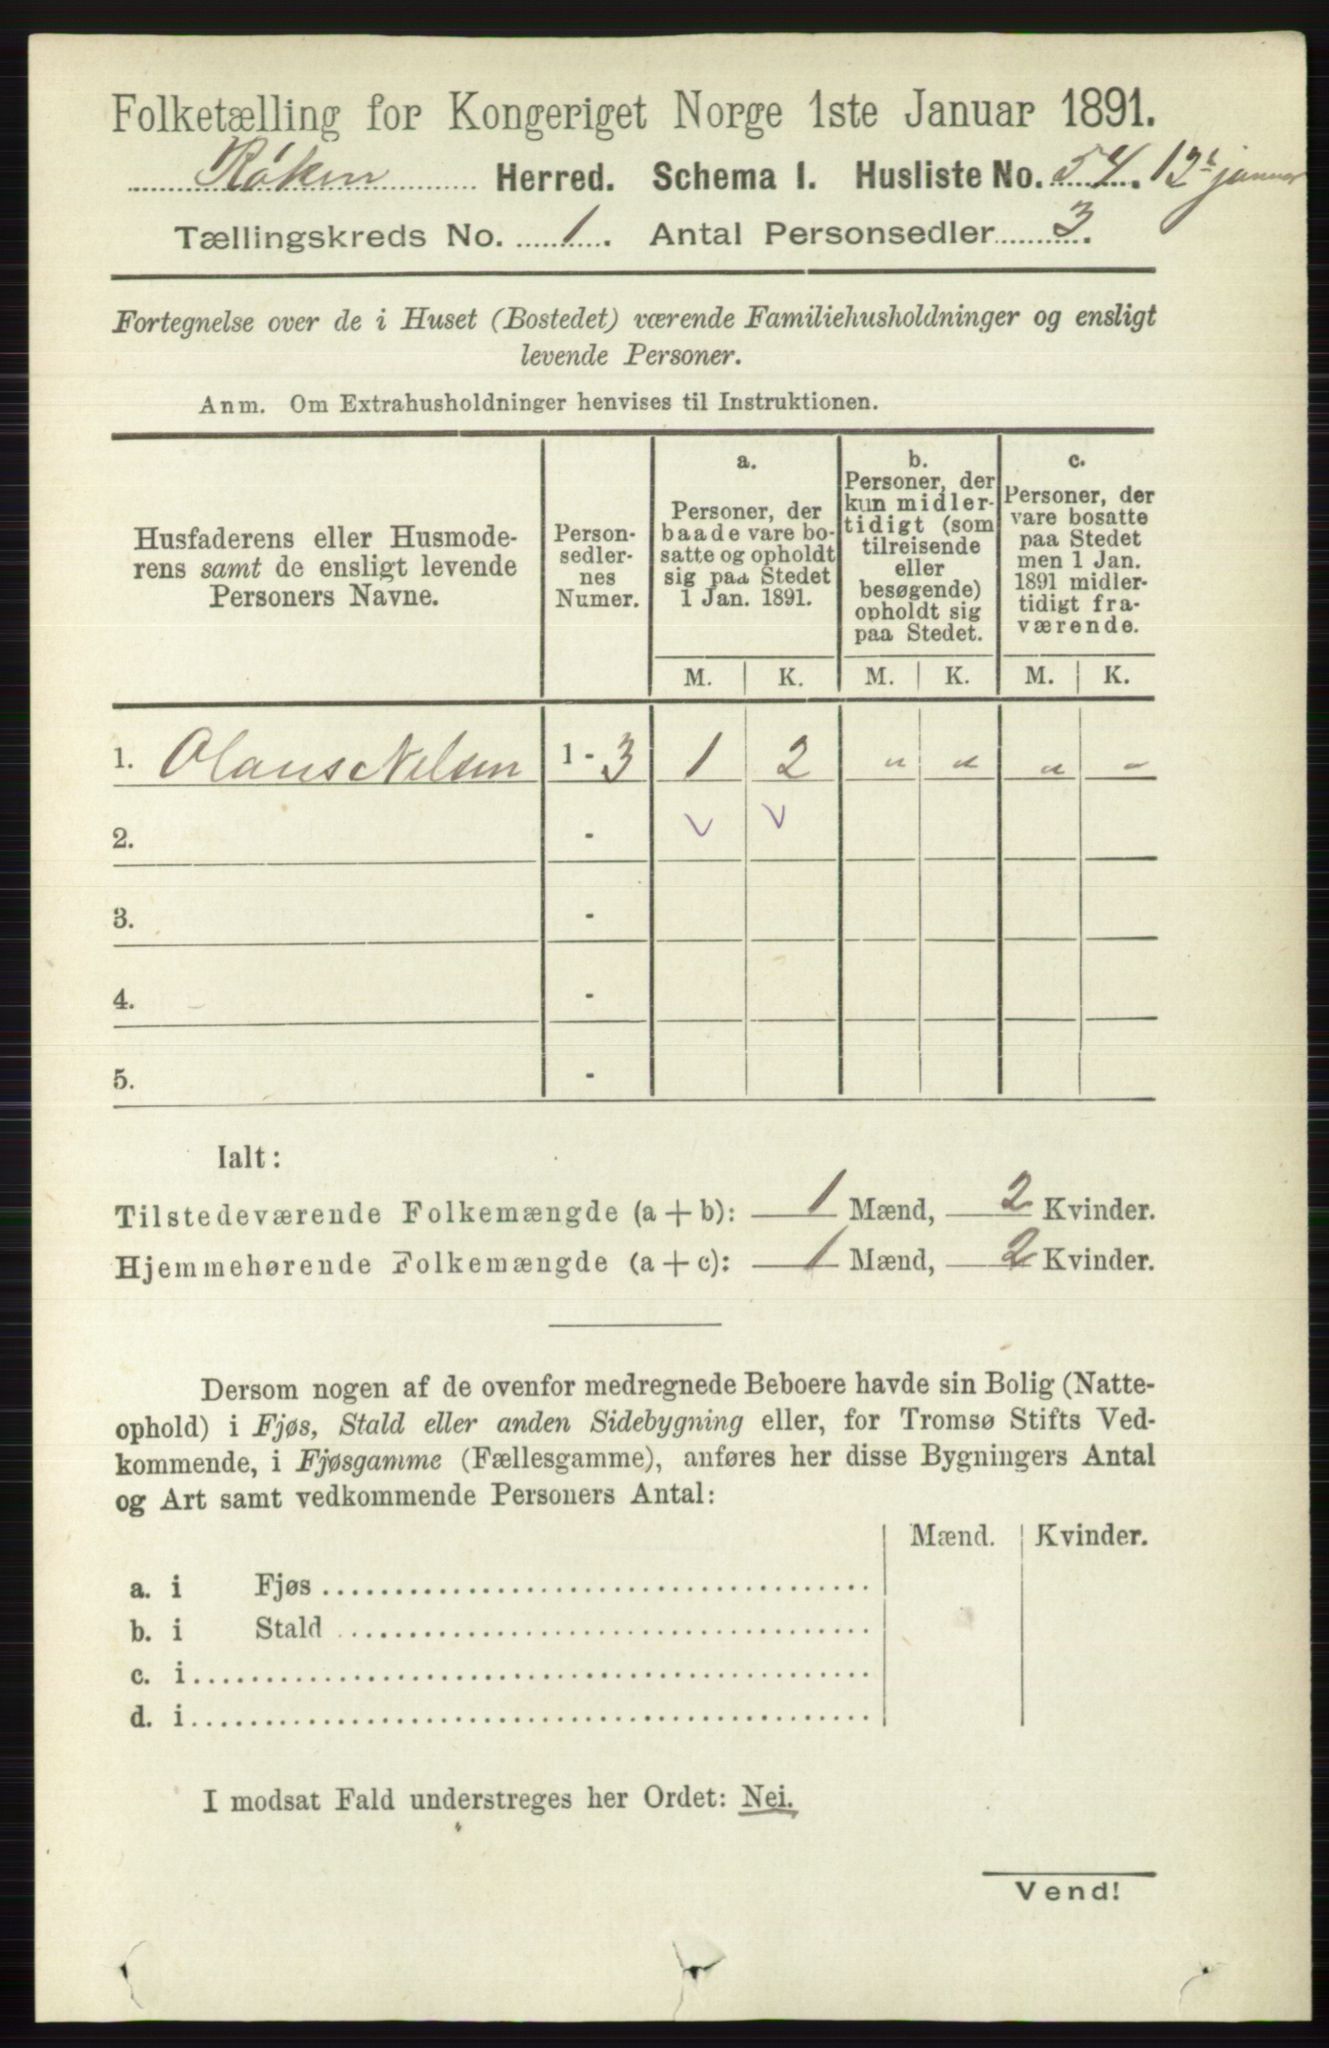 Folketælling for Kongeriget Norge 1ste Januar 1891.
Røken Herred. Schema I. Husliste No. 54. 12te januar
Tællingskreds No. 1. Antal Personsedler 3.
Fortegnelse over de i Huset (Bostedet) værende Familiehusholdninger og ensligt
levende Personer.
Anm. Om Extrahusholdninger henvises til Instruktionen.
Husfaderens eller Husmode-
rens samt de ensligt levende
Personers Navne.
Person-
sedler-
nes
Numer.
a.
Personer, der
baade vare bo-
satte og opholdt
sig paa Stedet
1 Jan. 1891.
b.
Personer, der
kun midler-
tidigt (som
tilreisende
eller
besøgende)
opholdt sig
paa Stedet.
c.
Personer, der
vare bosatte
paa Stedet
men 1 Jan.
1891 midler-
tidigt fra-
værende.
M. K. M. K. M. K.
1. Olaus Nelsen 1 - 3 1 2 " " " -
2. - v v
3. -
4. -
5. -
Ialt:
Tilstedeværende Folkemængde (a + b): 1 Mænd, 2 Kvinder.
Hjemmehørende Folkemængde (a + c): 1 Mænd, 2 Kvinder.
Dersom nogen af de ovenfor medregnede Beboere havde sin Bolig (Natte-
ophold) i Fjøs, Stald eller anden Sidebygning eller, for Tromsø Stifts Ved-
kommende, i Fjøsgamme (Fællesgamme), anføres her disse Bygningers Antal
og Art samt vedkommende Personers Antal:
Mænd. Kvinder.
a. i Fjøs
b. i Stald
c. i
d. i
I modsat Fald understreges her Ordet: Nei.
Vend!